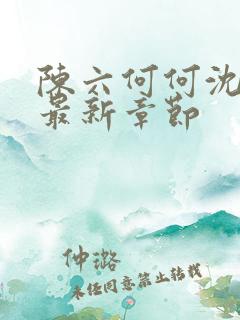 陳六何何沈
最新章節
仲璐
未经同意禁止转载